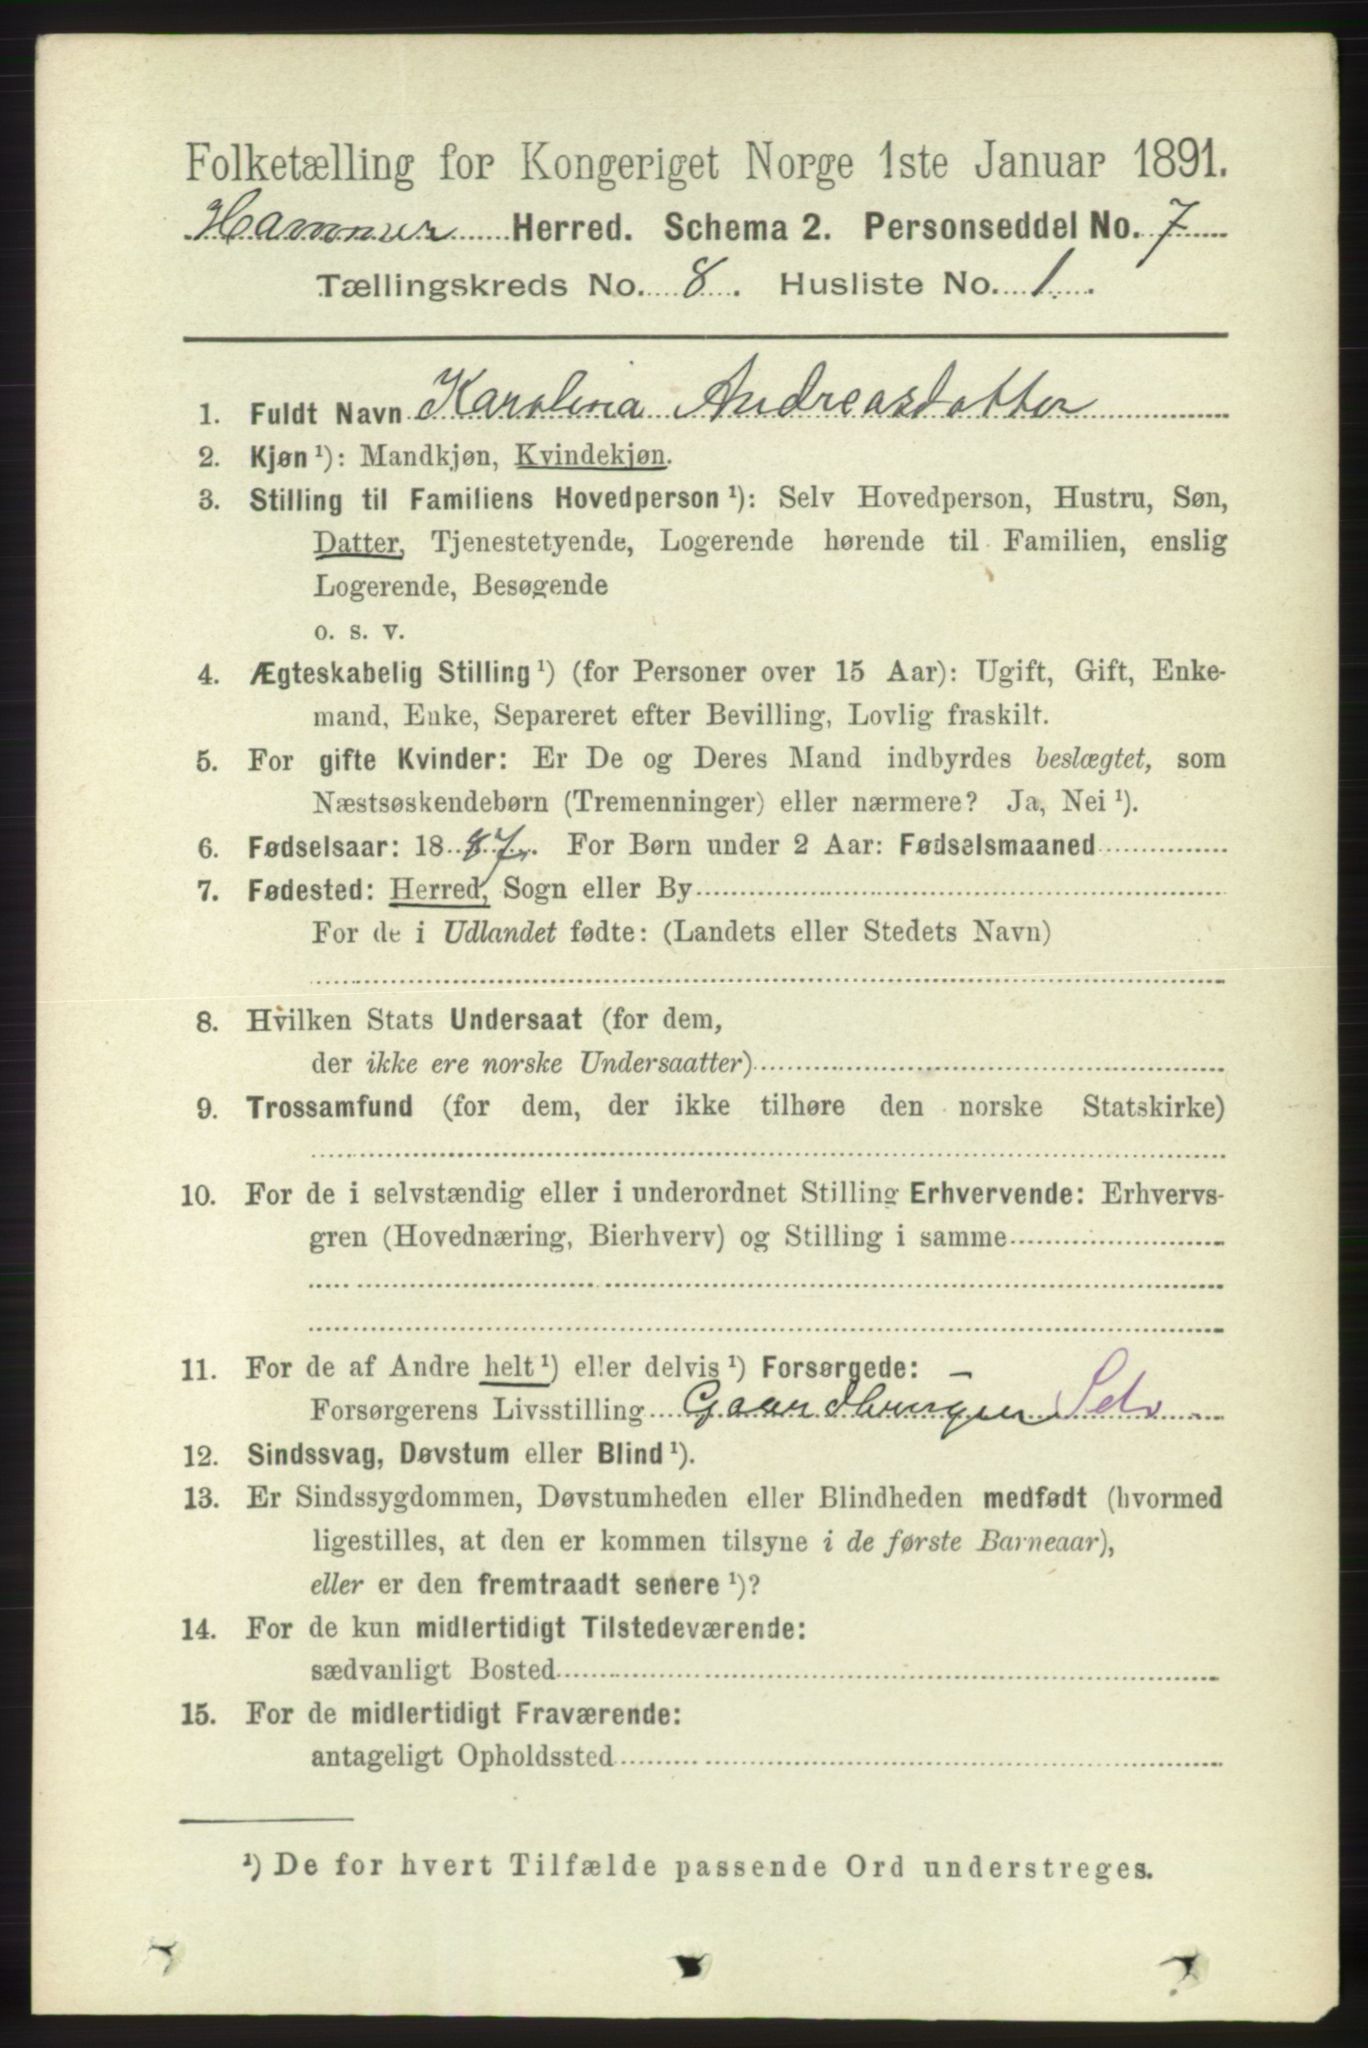 Folketælling for Kongeriget Norge 1ste Januar 1891.
Hammer Herred. Schema 2. Personseddel No. 7
Tællingskreds No. 8. Husliste No. 1.
1. Fuldt Navn Karolina Andreasdatter
2. Kjøn ¹): Mandkjøn, Kvindekjøn.
3. Stilling til Familiens Hovedperson ¹): Selv Hovedperson, Hustru, Søn,
Datter, Tjenestetyende, Logerende hørende til Familien, enslig
Logerende, Besøgende
o. s. v.
4. Ægteskabelig Stilling ¹) (for Personer over 15 Aar): Ugift, Gift, Enke-
mand, Enke, Separeret efter Bevilling, Lovlig fraskilt.
5. For gifte Kvinder: Er De og Deres Mand indbyrdes beslægtet, som
Næstsøskendebørn (Tremenninger) eller nærmere? Ja, Nei ¹).
6. Fødselsaar: 1887. For Børn under 2 Aar: Fødselsmaaned
7. Fødested: Herred, Sogn eller By
For de i Udlandet fødte: (Landets eller Stedets Navn)
8. Hvilken Stats Undersaat (for dem,
der ikke ere norske Undersaatter)
9. Trossamfund (for dem, der ikke tilhøre den norske Statskirke)
10. For de i selvstændig eller i underordnet Stilling Erhvervende: Erhvervs-
gren (Hovednæring, Bierhverv) og Stilling i samme
11. For de af Andre helt ¹) eller delvis ¹) Forsørgede: –
Forsørgerens Livsstilling Gaardbruger Selv
12. Sindssvag, Døvstum eller Blind ¹).
13. Er Sindssygdommen, Døvstumheden eller Blindheden medfødt (hvormed
ligestilles, at den er kommen tilsyne i de første Barneaar),
eller er den fremtraadt senere ¹)?
14. For de kun midlertidigt Tilstedeværende:
sædvanligt Bosted
15. For de midlertidigt Fraværende:
antageligt Opholdssted
¹) De for hvert Tilfælde passende Ord understreges.